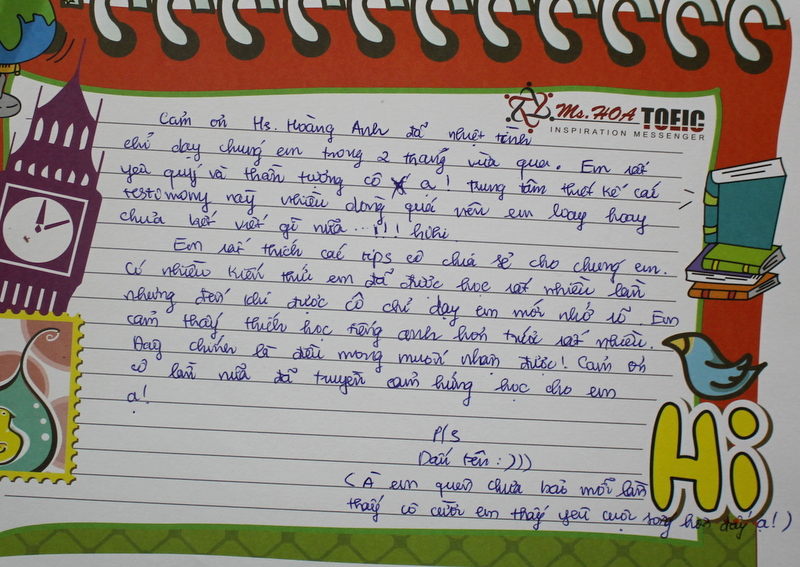 Ms. HOA TOEIC
INSPIRATION MESSENGER
Cảm ơn Ms. Hoàng Anh đã nhiệt tình
chỉ dạy chúng em trong 2 tháng vừa qua. Em rất
yêu quý và thần tượng cô ạ! Trung tâm thiết kế các
testimony này nhiều dòng quá nên em loay hoay
chưa biết viết gì nữa...!!! hihi
Em rất thích các tips cô chia sẻ cho chúng em.
Có nhiều kiến thức em đã được học rất nhiều lần
nhưng đến khi được cô chỉ dạy em mới nhớ rõ. Em
cảm thấy thích học tiếng anh hơn trước rất nhiều.
Đây chính là điều mong muốn nhận được! Cảm ơn
cô lần nữa đã truyền cảm hứng học cho em
ạ!
P/S
Dấu tên :)))
(À em quên chưa bảo mỗi lần
thấy cô cười em thấy yêu cuộc sống hơn đấy ạ!)
Hi